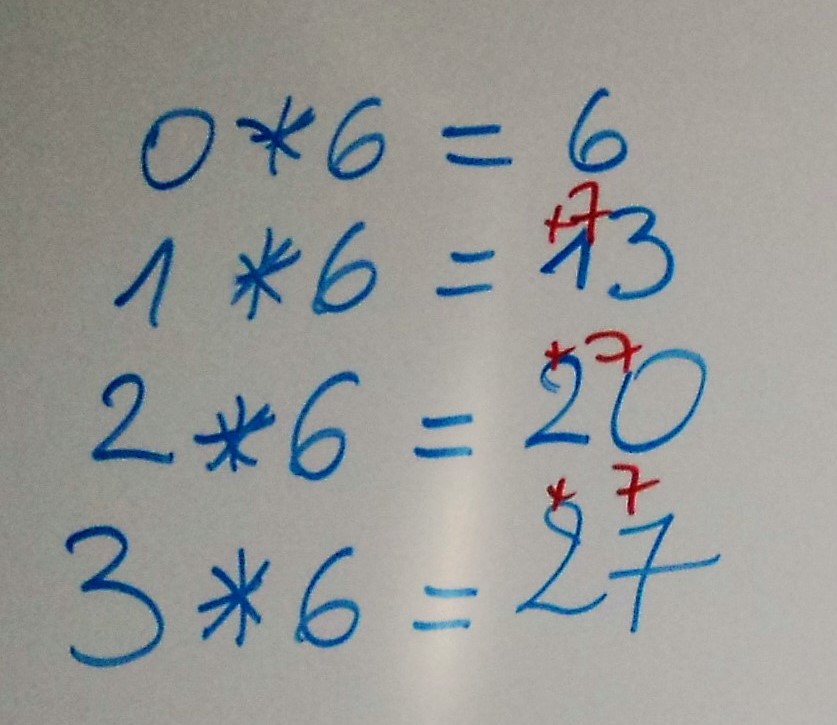 0 * 6 = 6
+7
1 * 6 = 13
+7
2 * 6 = 20
+7
3 * 6 = 27